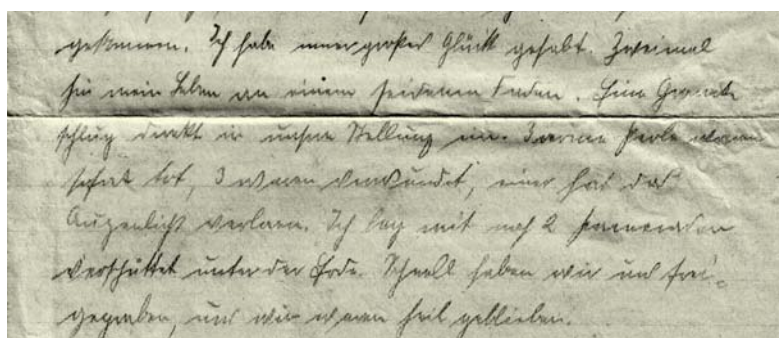 gekommen. Ich habe immer großes Glück gehabt. Zweimal
hin mein Leben an einem seidenen Faden. Eine Granate
schlug direkt in unsere Stellung ein. 3 arme Kerle waren
sofort tot, 3 waren verwundet, einer hat das
Augenlicht verloren. Ich lag mit noch 2 Kameraden
verschüttet unter der Erde. Schnell haben wir uns frei-
gegraben, und wir waren heil geblieben.